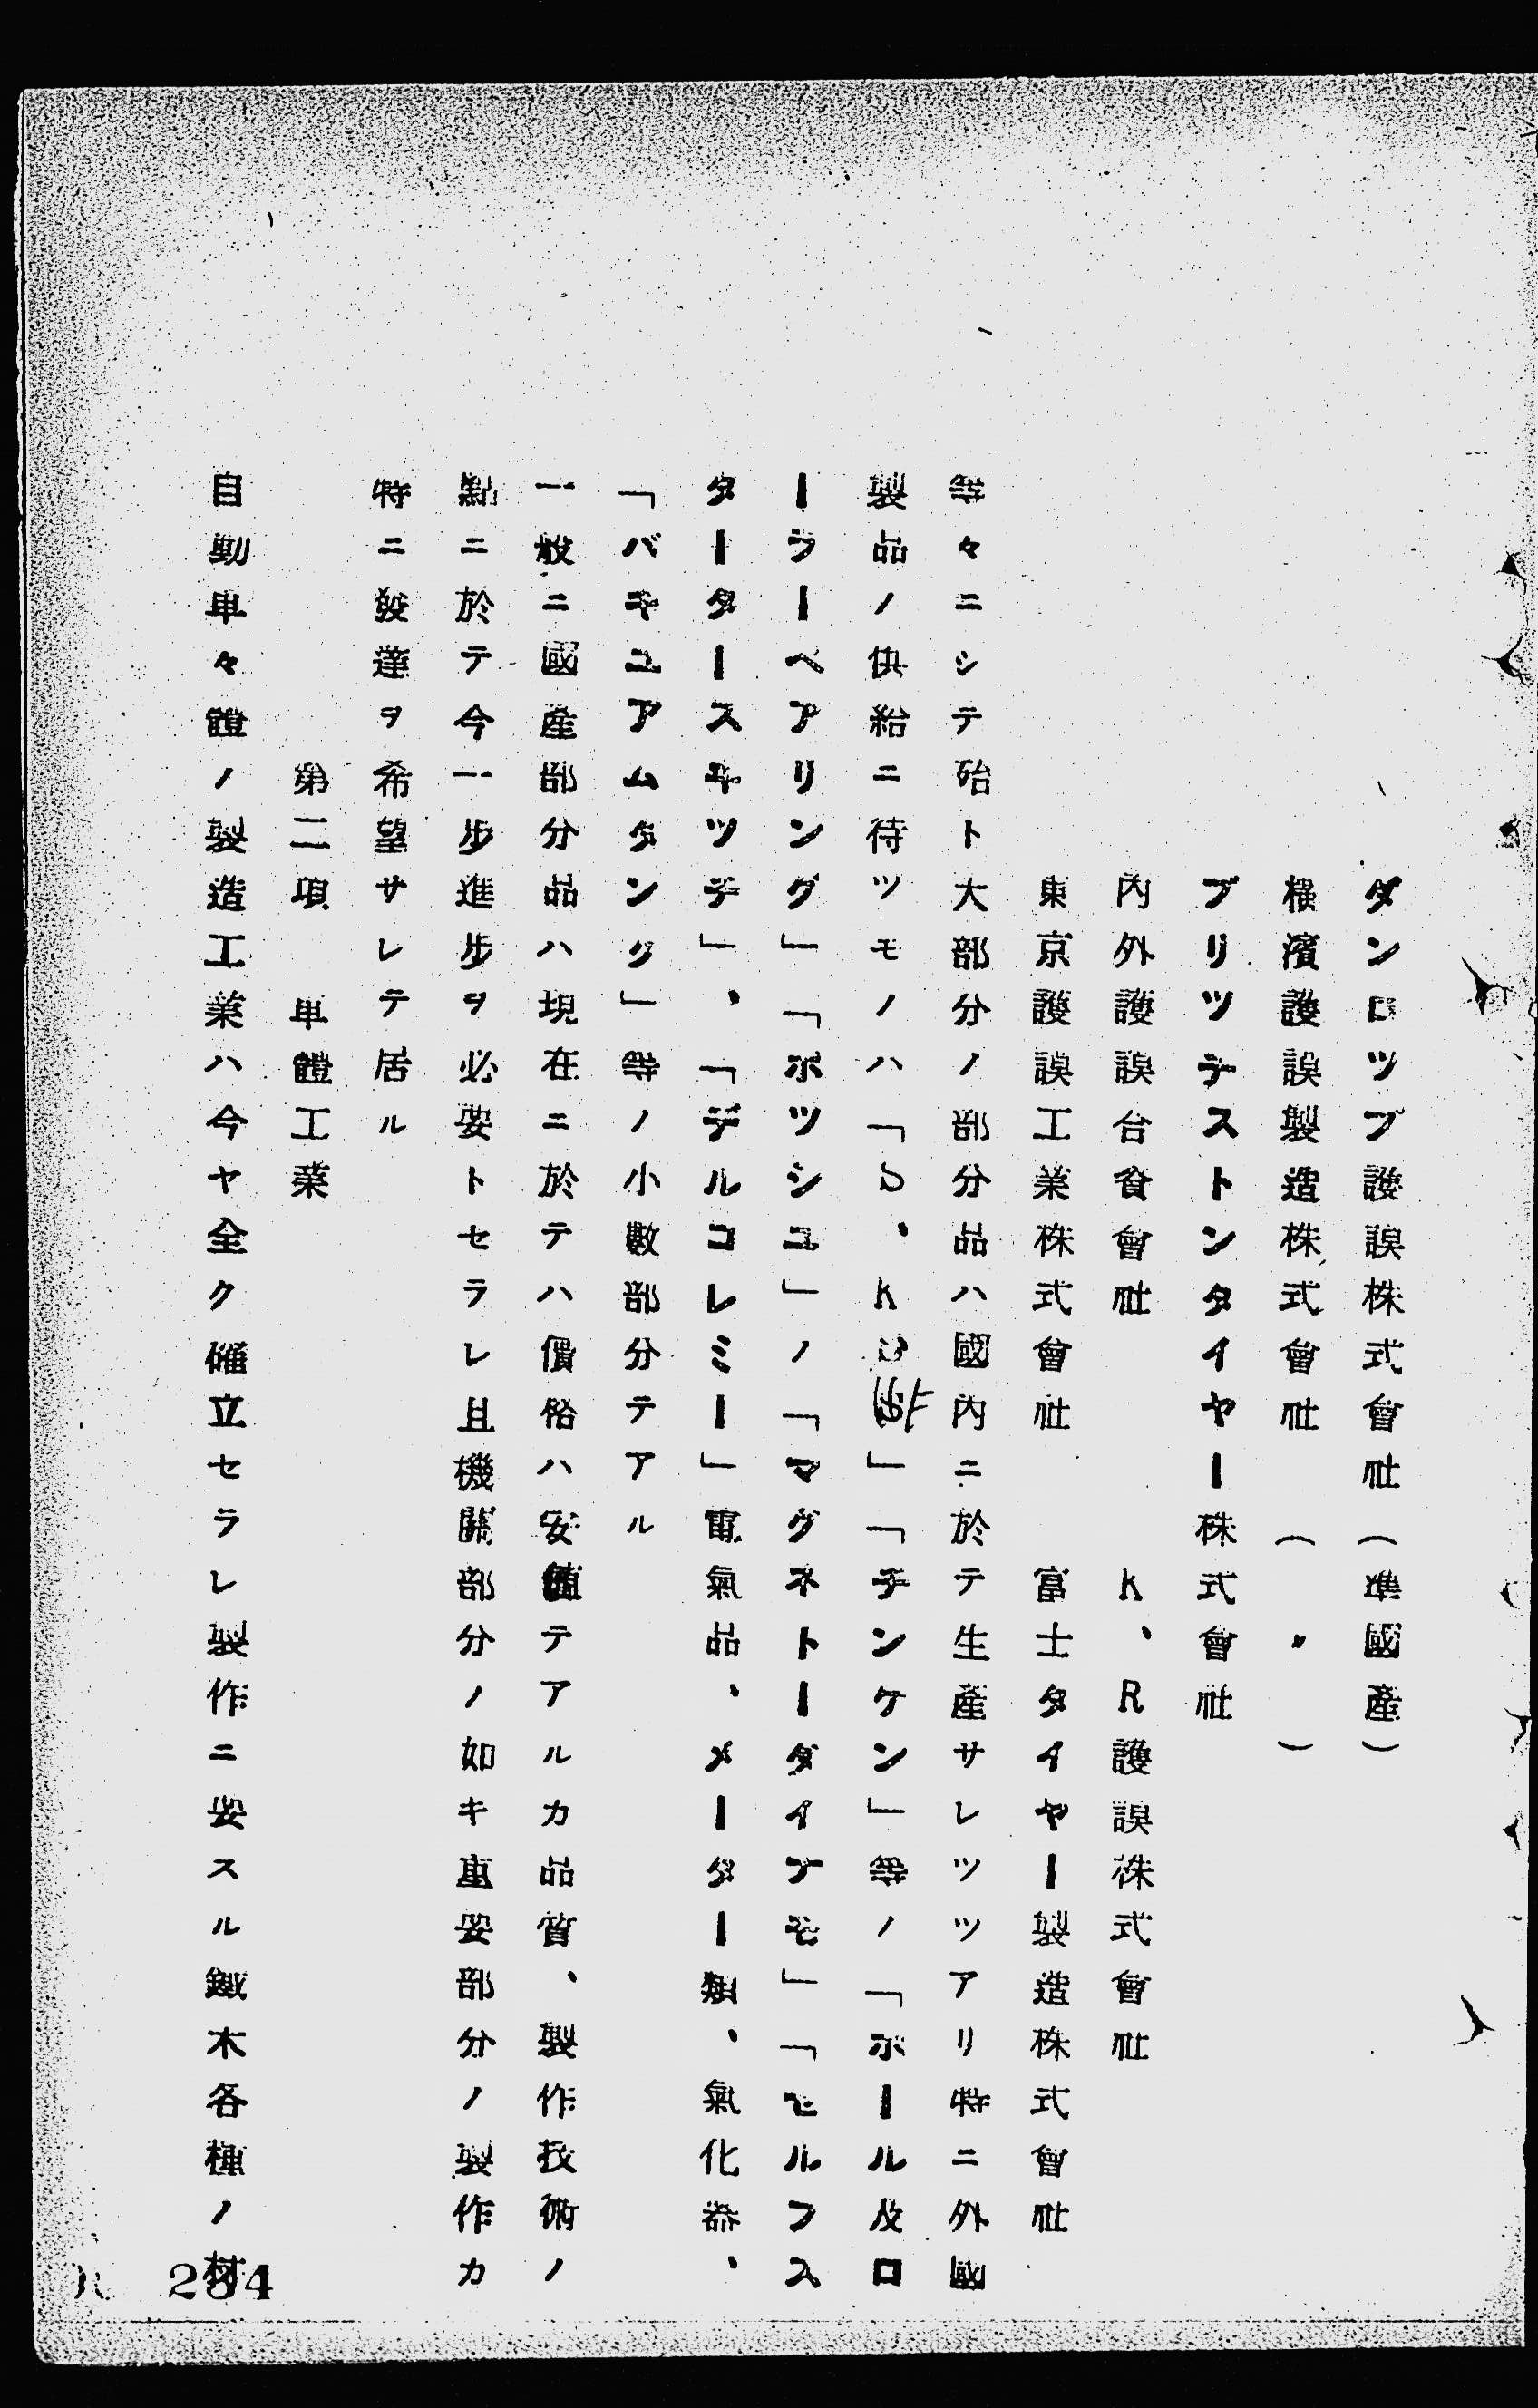 ダンロツプ護謨株式會社(準國產)
橫濱護謨製造株式會社(〃)
ブリツヂストンタイヤー株式會社
內外護謨合資會社　K、R護謨株式會社
東京護謨工業株式會社　富士タイヤー製造株式會社
等々ニシテ殆ト大部分ノ部分品ハ國內ニ於テ生產サレツツアリ特ニ外國
製品ノ供給ニ待ツモノハ「S、K F」「チンケン」等ノ「ボール及ロ
ーラーベアリング」「ボツシユ」ノ「マグネトーダイナモ」「セルフス
ターターススヰツチ」、「デルコレミー」電氣品、メーター類、氣化器、
「バキユアムタンク」等ノ小數部分テアル
一般ニ國產部分品ハ現在ニ於テハ價格ハ安値テアルカ品質、製作技術ノ
點ニ於テ今一步進步ヲ必要トセラレ且機關部分ノ如キ重要部分ノ製作カ
特ニ發達ヲ希望サレテ居ル
第二項　車體工業
自動車々體ノ製造工業ハ今ヤ全ク確立セラレ製作ニ要スル鐵木各種ノ材
234